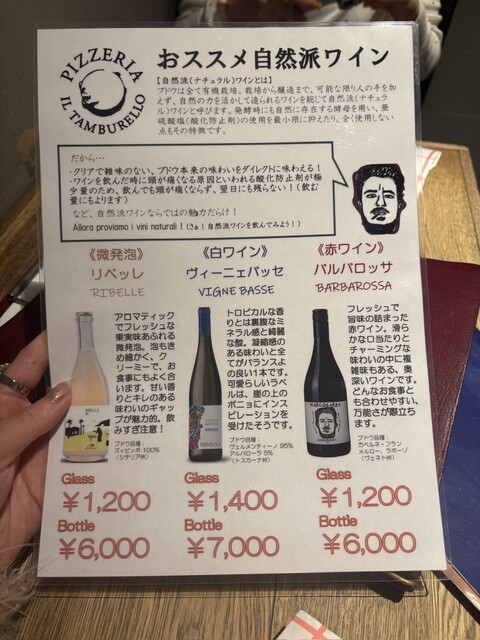 PIZZERIA
IL TAMBURELLO
おススメ自然派ワイン
【自然派(ナチュラル)ワインとは】
ブドウは全て有機栽培。栽培から醸造まで、可能な限り人の手を加
えず、自然の力を活かして造られるワインを総じて自然派(ナチュラ
ル)ワインと呼びます。発酵時にも自然に存在する酵母を用い、亜
硫酸塩(酸化防止剤)の使用を最小限に抑えたり、全く使用しない
点もその特徴です。
だから…
・クリアで雑味のない、ブドウ本来の味わいをダイレクトに味わえる!
・ワインを飲んだ時に頭が痛くなる原因といわれる酸化防止剤が極
少量のため、飲んでも頭が痛くならず、翌日にも残らない!(飲む
量にもよります)
など、自然派ワインならではの魅力だらけ!
Allora proviamo i vini naturali!(さぁ!自然派ワインを飲んでみよう!)
《微発泡》
リベッレ
RIBELLE
アロマティック
でフレッシュな
果実味あふれる
微発泡。泡もき
め細かく、ク
リーミーで、お
食事にもよく合
います。甘い香
りとキレのある
味わいのギャッ
プが魅力的。飲
みすぎ注意!
ブドウ品種:
ズィビッボ 100%
(シチリア州)
Glass
¥1,200
Bottle
¥6,000
《白ワイン》
ヴィーニェバッセ
VIGNE BASSE
トロピカルな香
りとは裏腹なミ
ネラル感と綺麗
な酸。凝縮感の
ある味わいと全
てがバランスよ
の良い1本です。
可愛らしいラベ
ルは、崖の上の
ポニョにインス
ピレーションを
受けたそうです。
ブドウ品種:
ヴェルメンティーノ 95%
アルバローラ 5%
(トスカーナ州)
Glass
¥1,400
Bottle
¥7,000
《赤ワイン》
バルバロッサ
BARBAROSSA
フレッシュで
旨味の詰まった
赤ワイン。滑ら
かな口当たりと
チャーミングな
味わいの中に複
雑味もある、奥
深いワインです。
どんなお食事と
も合わせやすい、
万能さが際立ち
ます。
ブドウ品種:
カベルネ・フラン
メルロー、ラボーソ
(ヴェネト州)
Glass
¥1,200
Bottle
¥6,000